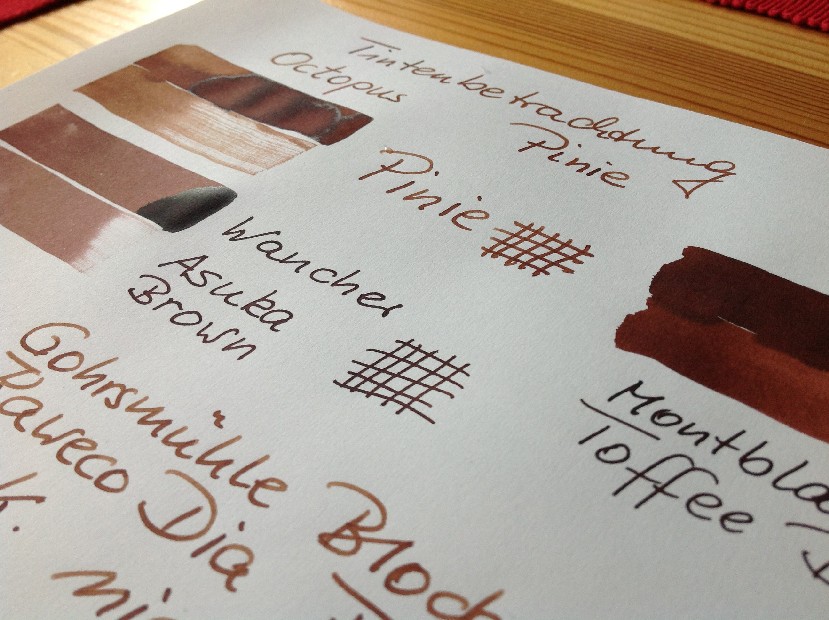 Tintenbetrachtung
Octopus Pinie
Pinie
Wancher
Asuka
Brown
Montbla
Toffee
Gohrsmühle Block
Kaweco Dia